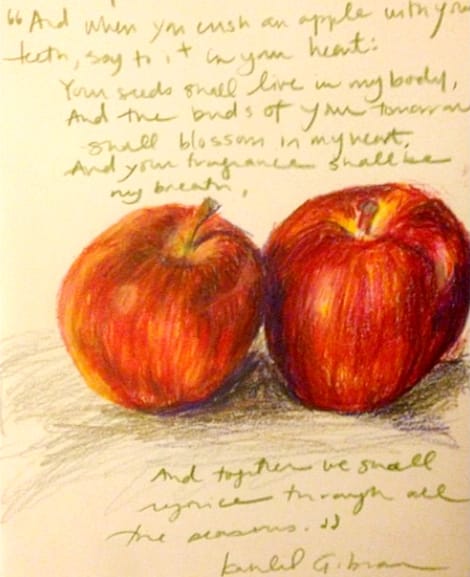 "And when you crush an apple with your
teeth, say to it in your heart:
Your seeds shall live in my body,
And the buds of your tomorrow
shall blossom in my heart,
And your fragrance shall be
my breath,
And together we shall
rejoice through all
the seasons."
Kahlil Gibran